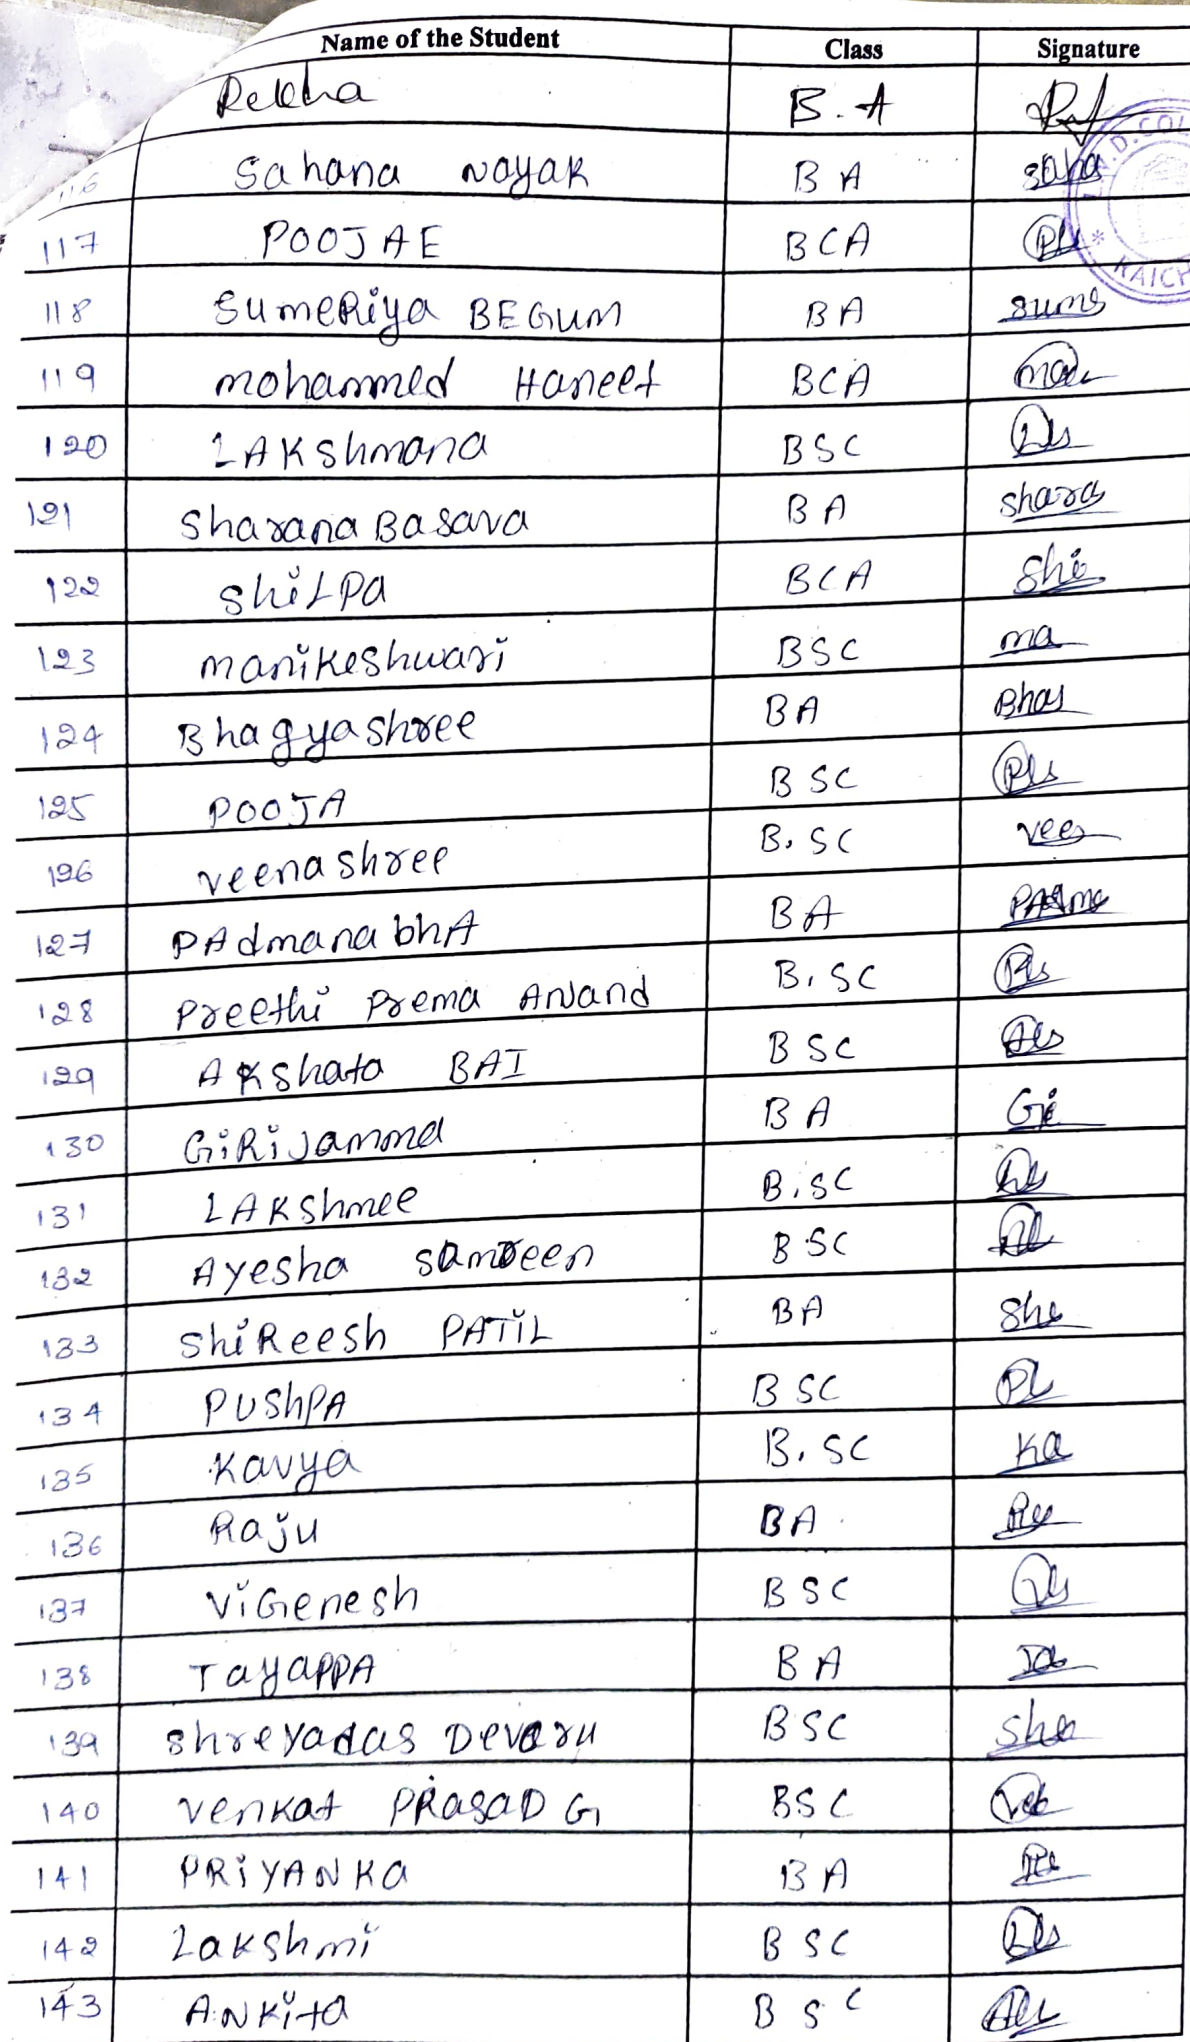 Name of the Student Class Signature
Rekha B.A
Sahana Nayak BA saha
117 POOJA E BCA
118 SumeRiya BEGUM BA sume
119 mohammed Haneef BCA
120 LAKshmana BSC
121 Sharana Basava BA shara
122 shiLPa BCA Shi
123 manikeshwari BSC ma
124 Bhagyashree BA Bhag
125 POOJA BSC
126 veenashree B.SC vee
127 PAdmanabhA BA
128 Preethi Prema ANand B.SC
129 AKshata BAI BSC
130 GiRiJamma BA Gi
131 LAKshmee B.SC
132 Ayesha samreen BSC
133 shiReesh PATiL BA She
134 PUShPA BSC
135 Kavya B.SC Ka
136 Raju BA
137 ViGenesh BSC
138 TayaPPA BA
139 shreyadas Devaru BSC
140 venkat PRasaD G BSC
141 PRiYANKa BA
142 Lakshmi BSC
143 ANKita BSC